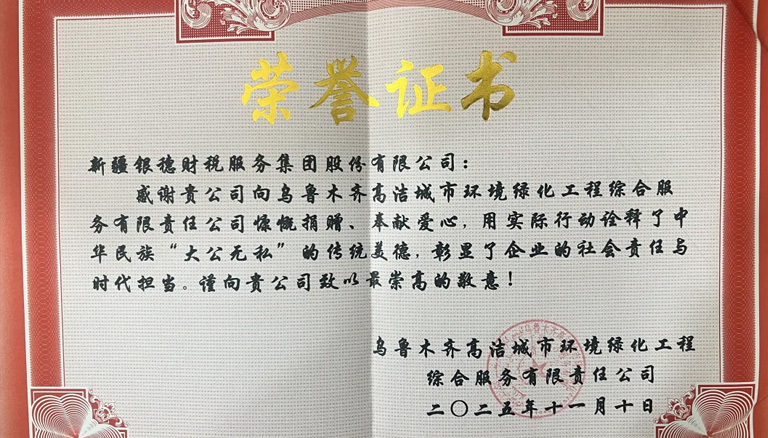 荣誉证书
新疆银穗财税服务集团股份有限公司：
感谢贵公司向乌鲁木齐高洁城市环境绿化工程综合服
务有限责任公司慷慨捐赠、奉献爱心，用实际行动诠释了中
华民族“大公无私”的传统美德，彰显了企业的社会责任与
时代担当。谨向贵公司致以最崇高的敬意！
乌鲁木齐高洁城市环境绿化工程
综合服务有限责任公司
二〇二五年十一月十日